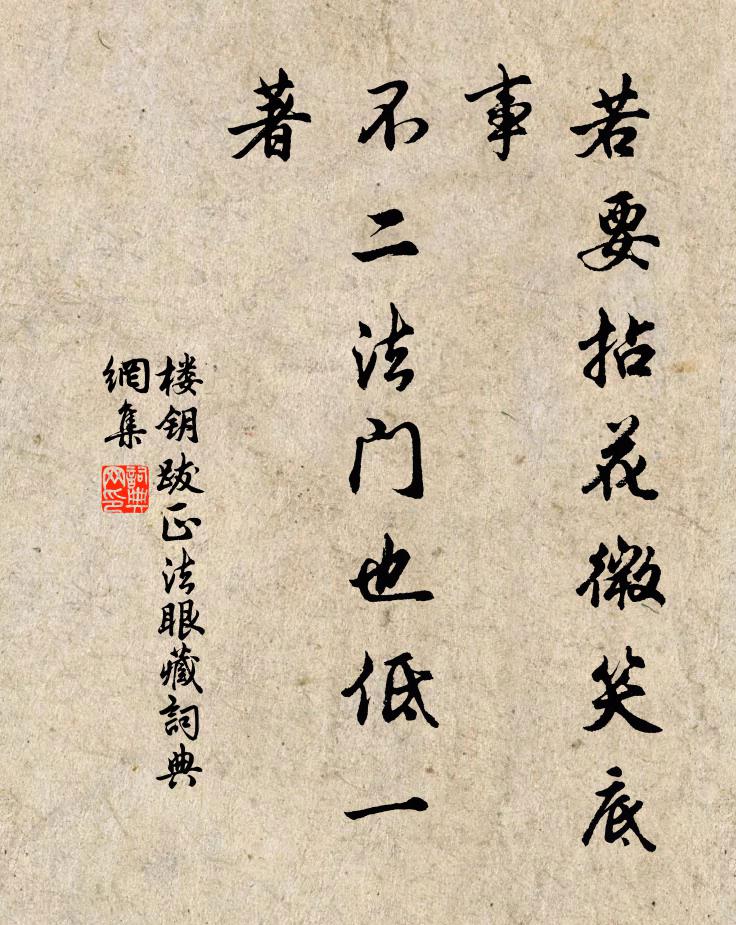 若要拈花微笑底
事
不二法门也低一
著
楼钥跋正法眼藏詞典
網集
詞典网印